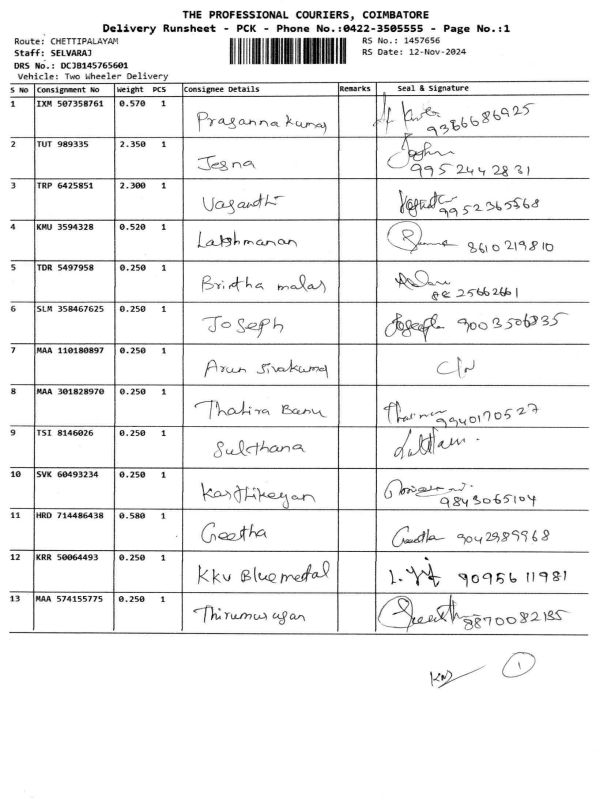 THE PROFESSIONAL COURIERS, COIMBATORE
Delivery Runsheet - PCK - Phone No.:0422-3505555 - Page No.:1
Route: CHETTIPALAYAM RS No.: 1457656
Staff: SELVARAJ RS Date: 12-Nov-2024
DRS No.: DCJB145765601
Vehicle: Two Wheeler Delivery
S No Consignment No Weight PCS Consignee Details Remarks Seal & Signature
1 IXM 507358761 0.570 1 Prasanna kumar 9386686925
2 TUT 989335 2.350 1 Jesna 9952442831
3 TRP 6425851 2.300 1 Vasandhi 9952365568
4 KMU 3594328 0.520 1 Lakshmanan 8610219810
5 TDR 5497958 0.250 1 Brintha malar
6 SLM 358467625 0.250 1 Joseph Joseph 9003506835
7 MAA 110180897 0.250 1 Arun Sivakumar C/N
8 MAA 301828970 0.250 1 Thahira Banu 9940170527
9 TSI 8146026 0.250 1 Sulthana
10 SVK 60493234 0.250 1 Karthikeyan 9843065104
11 HRD 714486438 0.580 1 Geetha Geetha 9042989968
12 KRR 50064493 0.250 1 KKV Bluemetal 9095611981
13 MAA 574155775 0.250 1 Thirumurugan 8870082185
1